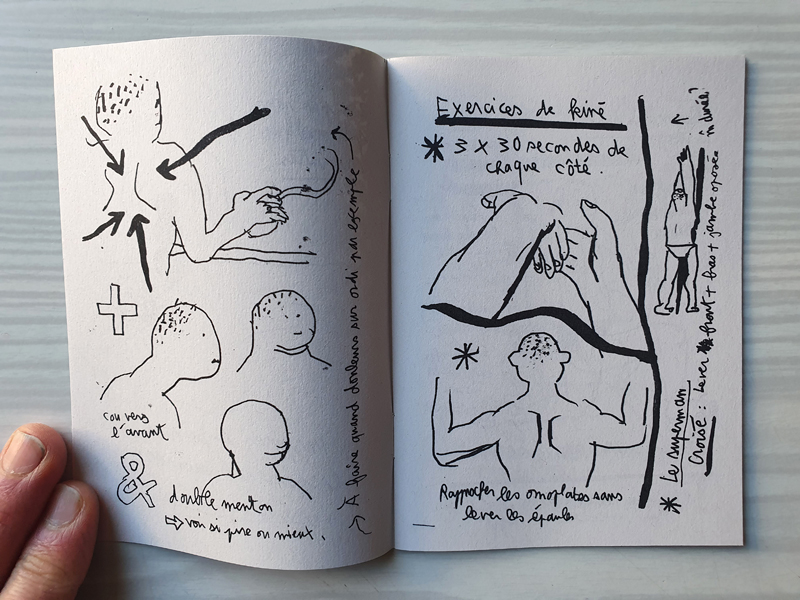 +
cou vers
l'avant
&
double menton
⇨ voir si pire ou mieux.
→ À faire quand douleurs sur ordi par exemple →
Exercices de kiné
* 3 x 30 secondes de
chaque côté.
*
Rapprocher les omoplates sans
lever les épaules
* Le superman
croisé : lever front + bras + jambe opposée